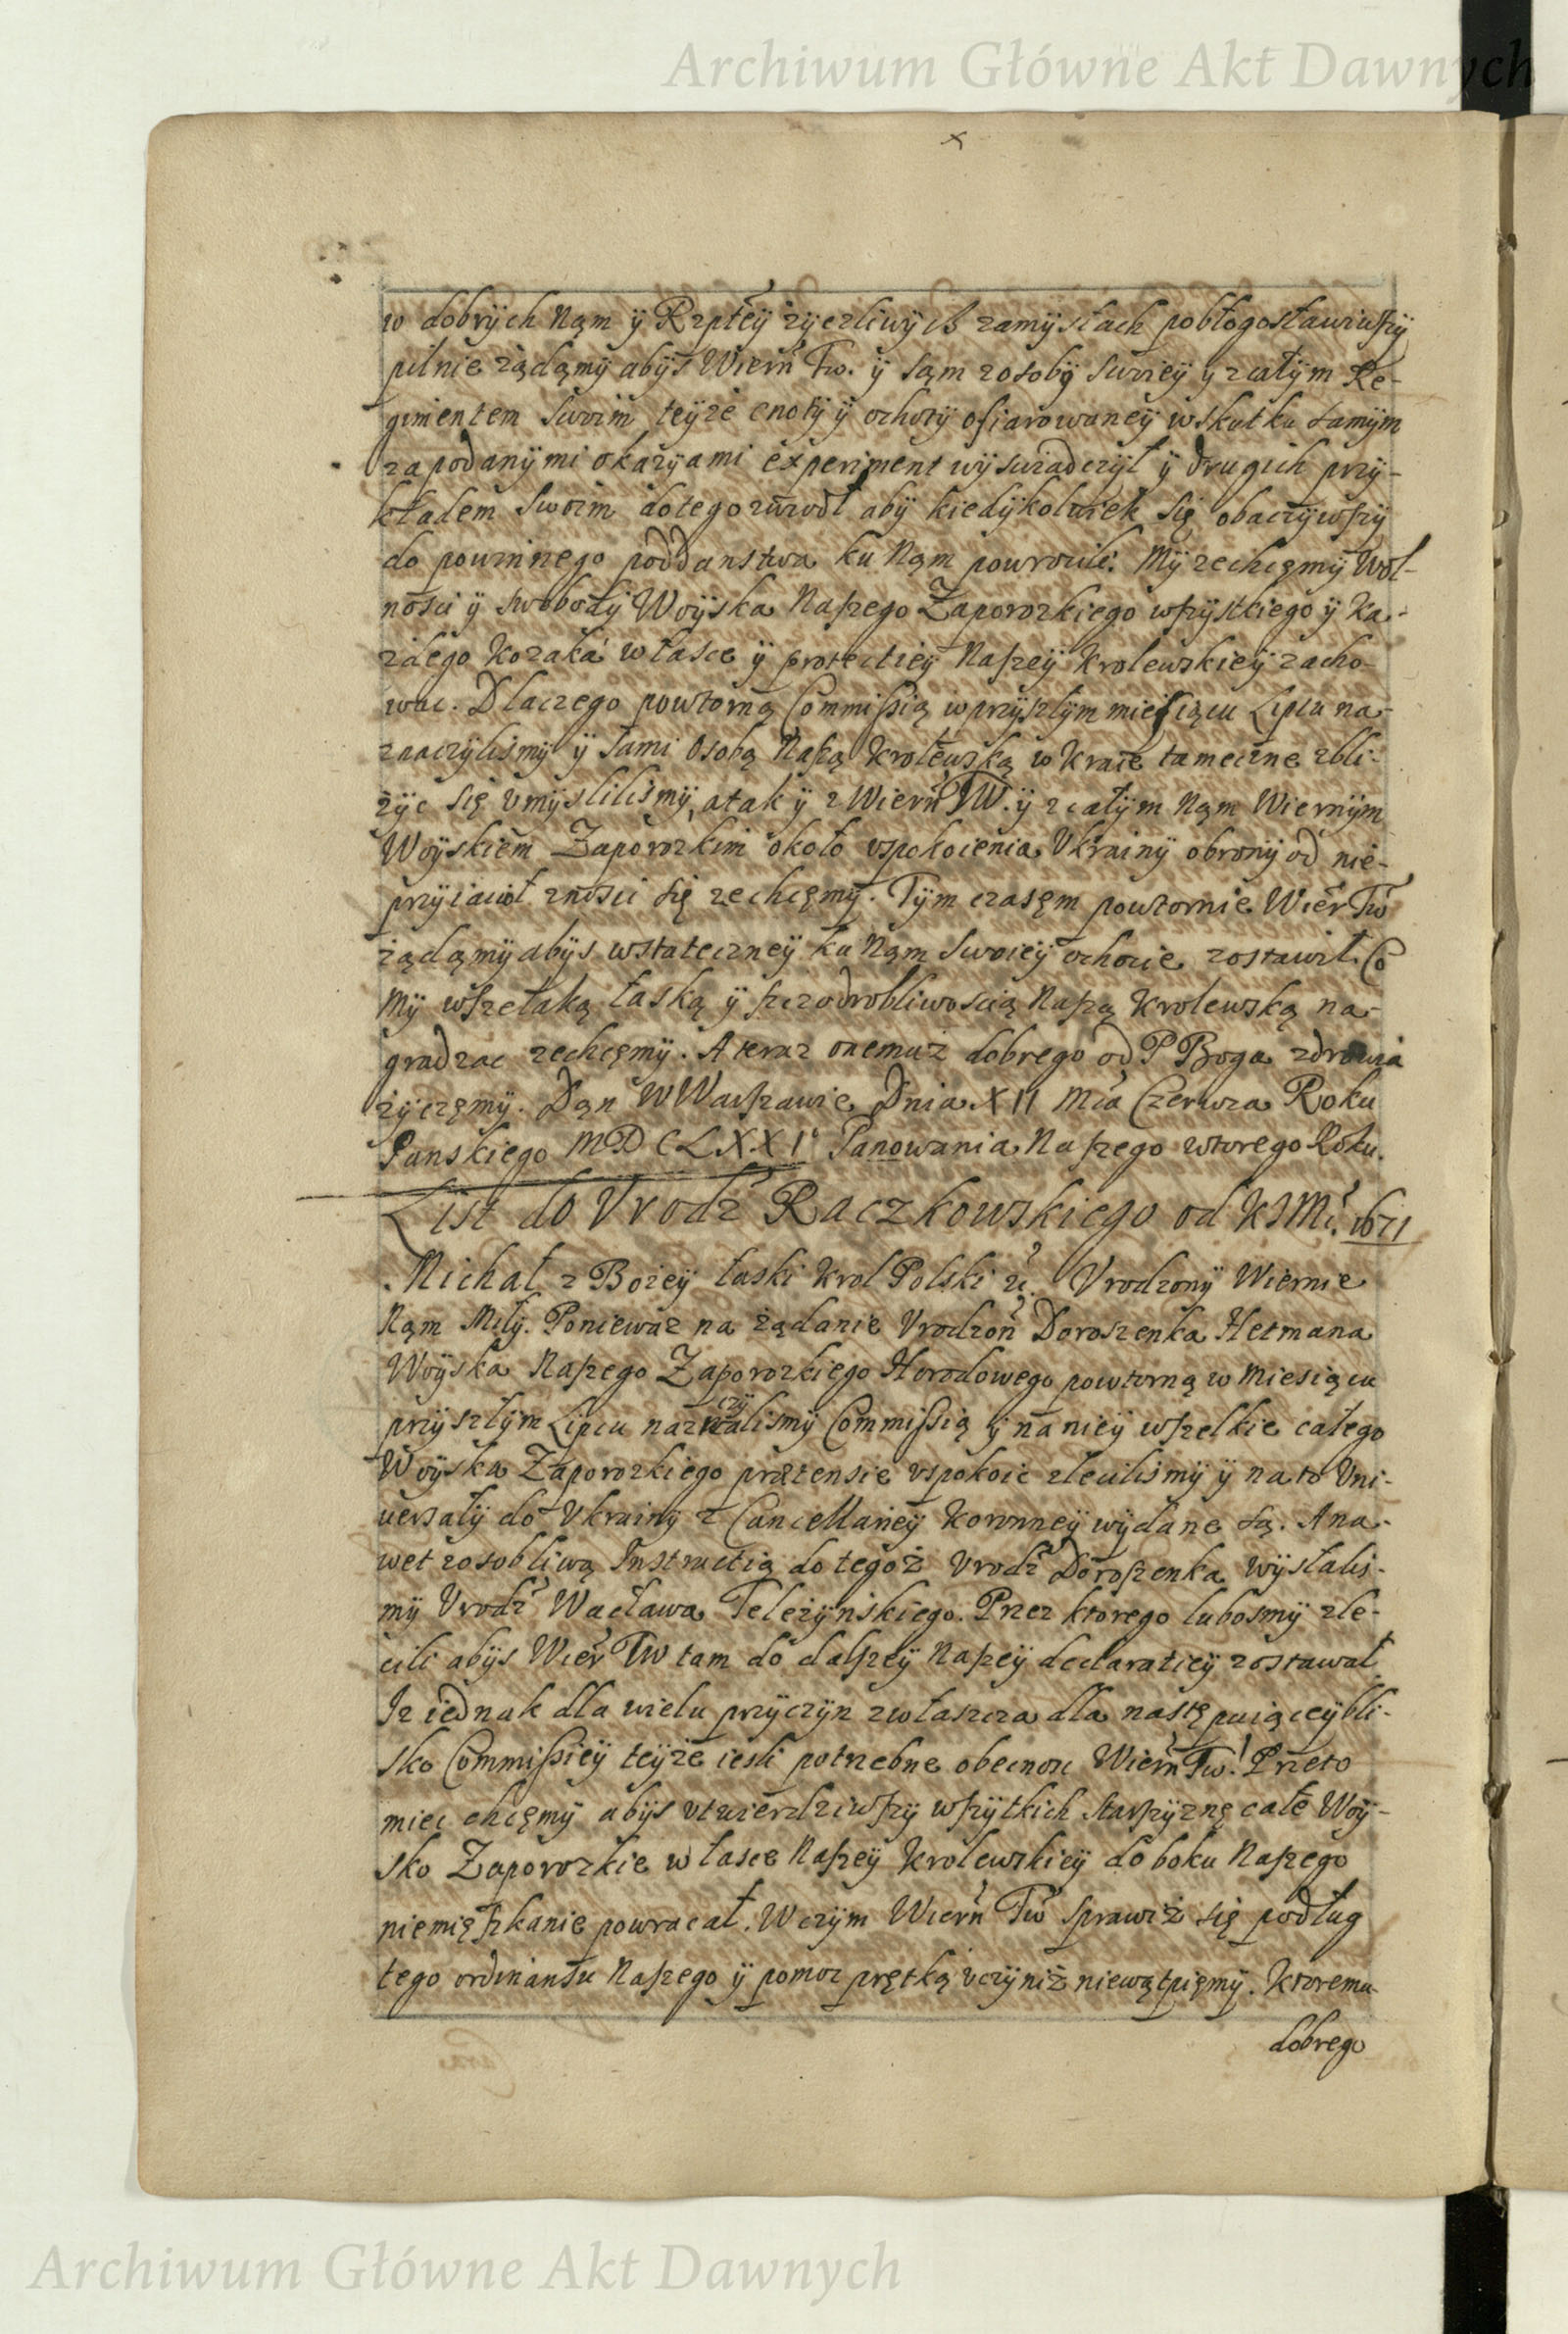 Archiwum Główne Akt Dawnych
w dobrych Nąm ÿ Rzpłteÿ zÿczliwÿch zamÿsłach pobłogosławiwszÿ
pilnie ządąmÿ abÿs Wiern Tw. ÿ sąm zosobÿ swoieÿ ÿ zcałÿm Re-
gimentem swoim teÿże cnotÿ ÿ ochotÿ ofiarowaneÿ w skutku samÿm
zapodanÿmi okazÿami experiment wÿswiadczÿł ÿ drugich przÿ-
kładem swoim dotego zawodł abÿ kiedÿkolwiek się obaczÿwszÿ
do powinnego poddanstwa ku Nąm powrocili. Mÿ zechcęmÿ Wol-
nosci ÿ swobodÿ Woÿska Naszego Zaporozkiego wszÿstkiego ÿ Ka-
zdego Kozaka w łasce ÿ protectieÿ Naszeÿ Krolewskieÿ zacho-
wac. Dlaczego powtorną Commissią w przÿszłÿm miesiącu Lipcu na-
znaczÿlismÿ ÿ sami Osobą Naszą Krolewską w Kraie tameczne zbli-
żÿc się vmÿslilismÿ, atak ÿ z Wiern TW. ÿ z całÿm Nąm Wiernÿm
Woÿskiem Zaporozkim około vspokoienia Vkrainÿ obronÿ od nie-
przÿiacioł znosci się zechcęmÿ. Tÿm czasęm powtornie Wier Tw
ządąmÿ abÿs wstateczneÿ ku Nąm swoieÿ ochocie zostawił. Co
Mÿ wszelaką łaską ÿ szczodrobliwoscią Naszą Krolewską na-
gradzac zechcęmÿ. A teraz onemuż dobrego od P Boga zdrowia
zÿczęmÿ. Dąn W Warszawie Dnia XII Mca Czerwca Roku
Panskiego MDCLXXI Panowania Naszego wtorego Roku.
List do Vrodz Raczkowskiego od KJMci. 1671
Michał z Bożeÿ łaski Krol Polski &c. Vrodzonÿ Wiernie
Nąm Miłÿ. Poniewaz na żądanie Vrodzon Doroszenka Hetmana
Woÿska Naszego Zaporozkiego Horodowego powtorną w Miesiącu
przÿszłÿm Lipcu naznaczÿlismÿ Commissią ÿ na nieÿ wszelkie całego
Woÿska Zaporozkiego prætensie vspokoic zlecilismÿ ÿ na to Vni-
uersałÿ do Vkrainÿ z Cancellarieÿ Koronneÿ wÿdane są. A na-
wet zosobliwą Instructią do tegoż Vrodz Doroszenka wÿsłalis-
mÿ Vrodz Wacława Teleżÿnskiego. Przez ktorego lubosmÿ zle-
cili abÿs Wier TW tam do dalszeÿ Naszeÿ declaratieÿ zostawał
Iz iednak dla wielu przÿczÿn zwłaszcza dla następuiąceÿ bli-
sko Commissieÿ teÿże iesli potrzebne obecnosc Wiern Tw. Przeto
miec chcęmÿ abÿs vtwierdziwszÿ wszÿtkich starszÿznę całe Woÿ-
sko Zaporozkie w łasce Naszeÿ Krolewskieÿ do boku Naszego
niemięszkanie powracał. W czÿm Wiern Tw sprawiż się podług
tego ordinansu Naszego ÿ pomoc prętką vczÿniż niewątpięmÿ. Ktoremu
dobrego
Archiwum Główne Akt Dawnych